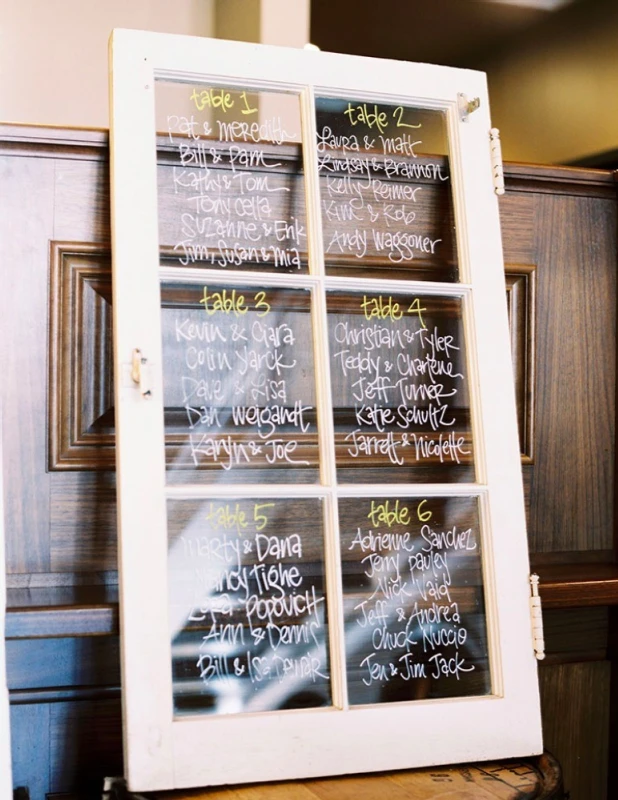 table 1
Pat & Meredith
Bill & Pam
Kathy & Tom
Tony Cella
Suzanne & Erik
Jim, Susan & Mia
table 2
Laura & Matt
Lindsay & Brannon
Kelly Reimer
Kim & Rob
Andy Waggoner
table 3
Kevin & Ciara
Colin Yarck
Dave & Lisa
Dan Weigandt
Karyn & Joe
table 4
Christian & Tyler
Teddy & Charlene
Jeff Turner
Katie Schultz
Jarrett & Nicolette
table 5
Marty & Dana
Nancy Tighe
Popovich
Ann & Dennis
Bill &
table 6
Adrienne Sanchez
Jerry Pauley
Nick Vaid
Jeff & Andrea
Chuck Nuccio
Jen & Jim Jack